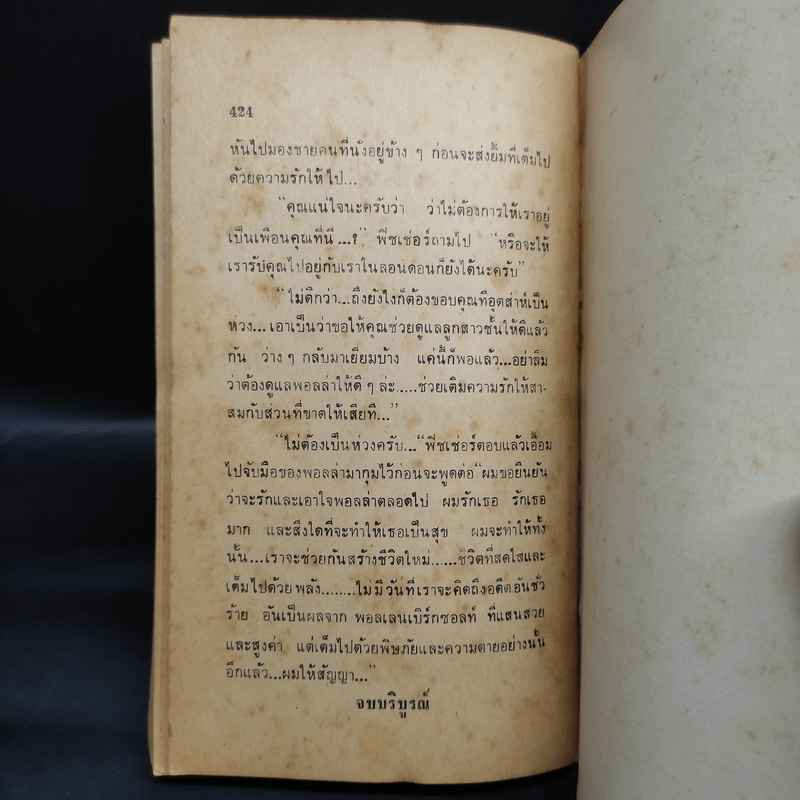 424
หันไปมองชายคนที่นั่งอยู่ข้าง ๆ ก่อนจะส่งยิ้มที่เต็มไป
ด้วยความรักให้ไป...
“คุณแน่ใจนะครับว่า ว่าไม่ต้องการให้เราอยู่
เป็นเพื่อนคุณที่นี่...?” ฟิชเช่อร์ถามไป “หรือจะให้
เรารับคุณไปอยู่กับเราในลอนดอนก็ยังได้นะครับ”
“ไม่ดีกว่า...ถึงยังไงก็ต้องขอบคุณที่อุตส่าห์เป็น
ห่วง...เอาเป็นว่าขอให้คุณช่วยดูแลลูกสาวชั้นให้ดีแล้ว
กัน ว่าง ๆ กลับมาเยี่ยมบ้าง แค่นี้ก็พอแล้ว...อย่าลืม
ว่าต้องดูแลพอลล่าให้ดี ๆ ล่ะ.....ช่วยเติมความรักให้สา-
สมกับส่วนที่ขาดให้เสียที...”
“ไม่ต้องเป็นห่วงครับ...“ฟิชเช่อร์ตอบแล้วเอื้อม
ไปจับมือของพอลล่ามากุมไว้ก่อนจะพูดต่อ“ผมขอยืนยัน
ว่าจะรักและเอาใจพอลล่าตลอดไป ผมรักเธอ รักเธอ
มาก และสิ่งใดที่จะทำให้เธอเป็นสุข ผมจะทำให้ทั้ง
นั้น...เราจะช่วยกันสร้างชีวิตใหม่......ชีวิตที่สดใสและ
เต็มไปด้วยพลัง........ไม่มีวันที่เราจะคิดถึงอดีตอันชั่ว
ร้าย อันเป็นผลจาก พอลเลนเบิร์กซอลท์ ที่แสนสวย
และสูงค่า แต่เต็มไปด้วยพิษภัยและความตายอย่างนั้น
อีกแล้ว...ผมให้สัญญา...”
จบบริบูรณ์